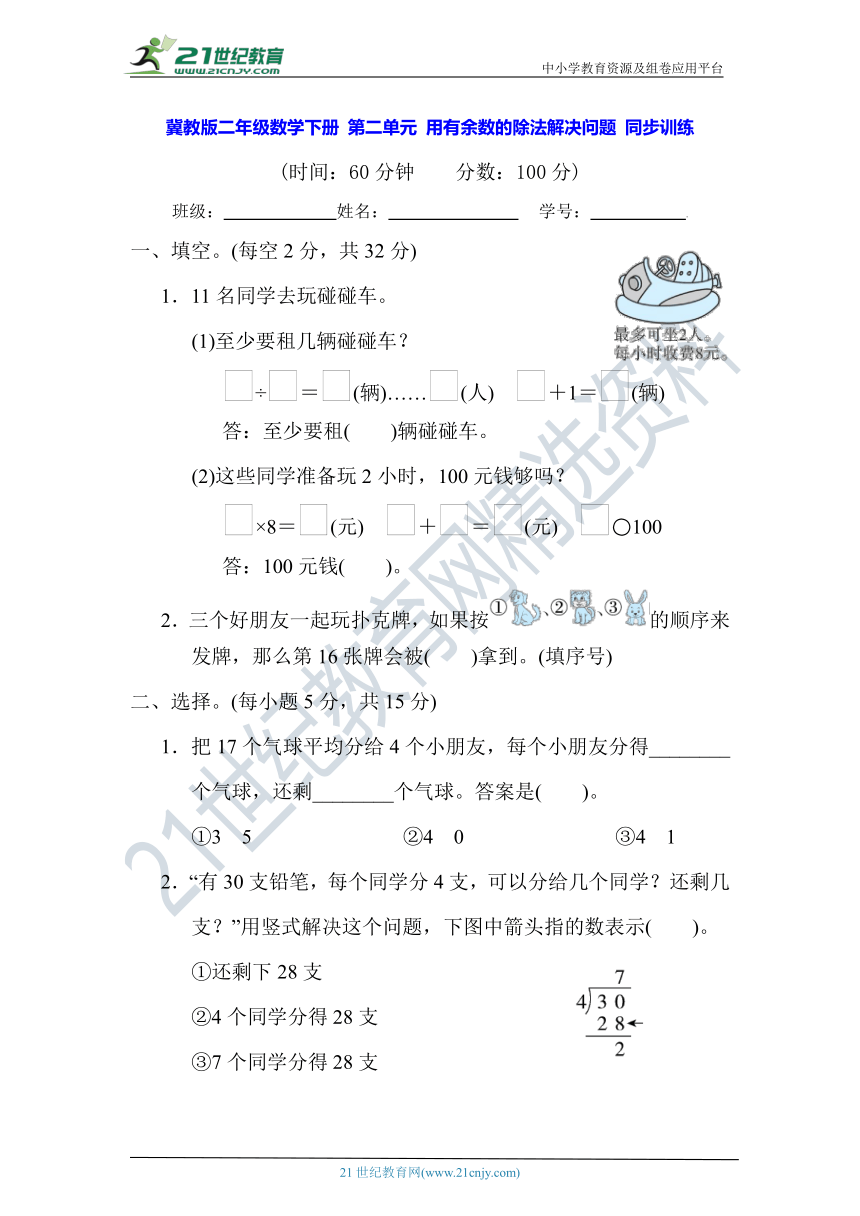 21世纪教育
WWW.21CNJY.COM
中小学教育资源及组卷应用平台
冀教版二年级数学下册 第二单元 用有余数的除法解决问题 同步训练
(时间:60分钟 分数:100分)
班级: 姓名: 学号: .
一、填空。(每空2分,共32分)
1.11名同学去玩碰碰车。
最多可坐2人。
每小时收费8元。
(1)至少要租几辆碰碰车?
□÷□=□(辆)……□(人) □+1=□(辆)
答:至少要租( )辆碰碰车。
(2)这些同学准备玩2小时,100元钱够吗?
□×8=□(元) □+□=□(元) □○100
答:100元钱( )。
2.三个好朋友一起玩扑克牌,如果按①、②、③的顺序来
发牌,那么第16张牌会被( )拿到。(填序号)
二、选择。(每小题5分,共15分)
1.把17个气球平均分给4个小朋友,每个小朋友分得________
个气球,还剩________个气球。答案是( )。
①3 5 ②4 0 ③4 1
2.“有30支铅笔,每个同学分4支,可以分给几个同学?还剩几
支?”用竖式解决这个问题,下图中箭头指的数表示( )。
①还剩下28支
②4个同学分得28支
③7个同学分得28支
7
4)30
28←
2
21世纪教育网精选资料
21世纪教育网(www.21cnjy.com)